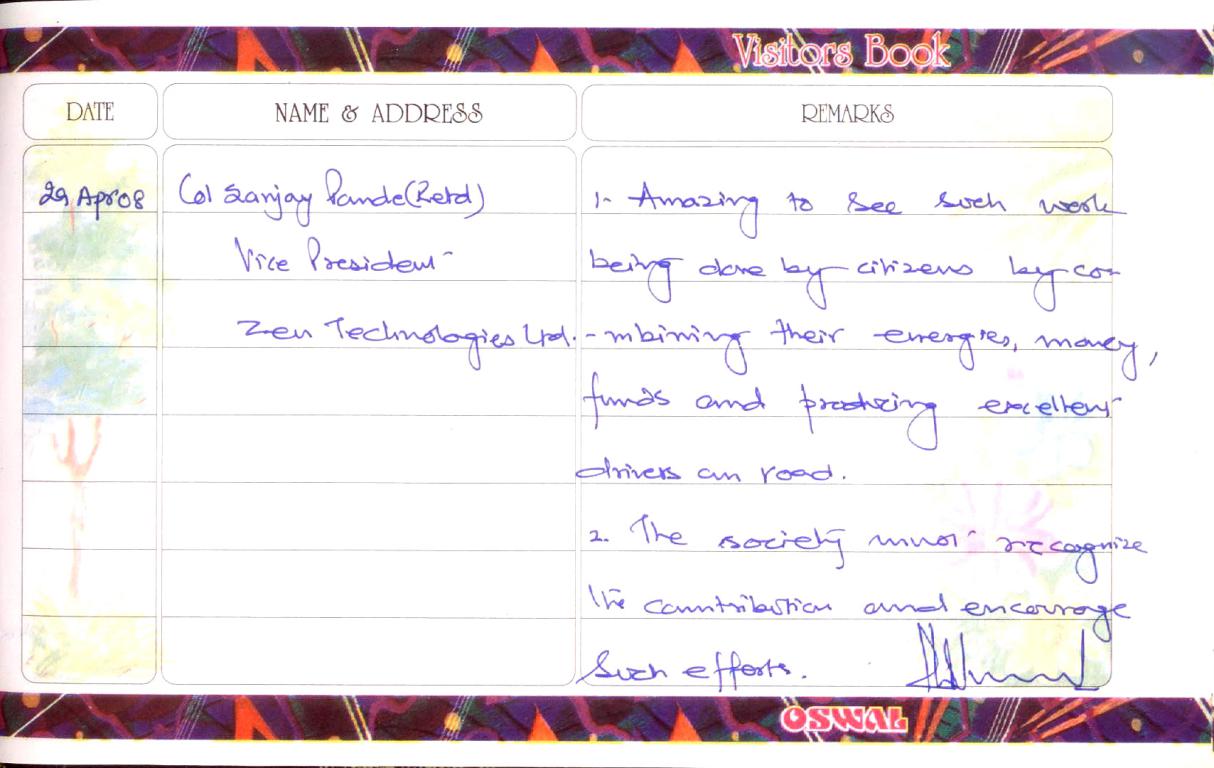 Visitors Book
DATE NAME & ADDRESS REMARKS
29 Apr 08 Col Sanjay Pande (Retd) 1. Amazing to see such work
Vice President being done by citizens by co-
Zen Technologies Ltd. - mbining their energies, money,
funds and producing excellent
drivers on road.
2. The society must recognize
the contribution and encourage
such efforts.
OSWAL